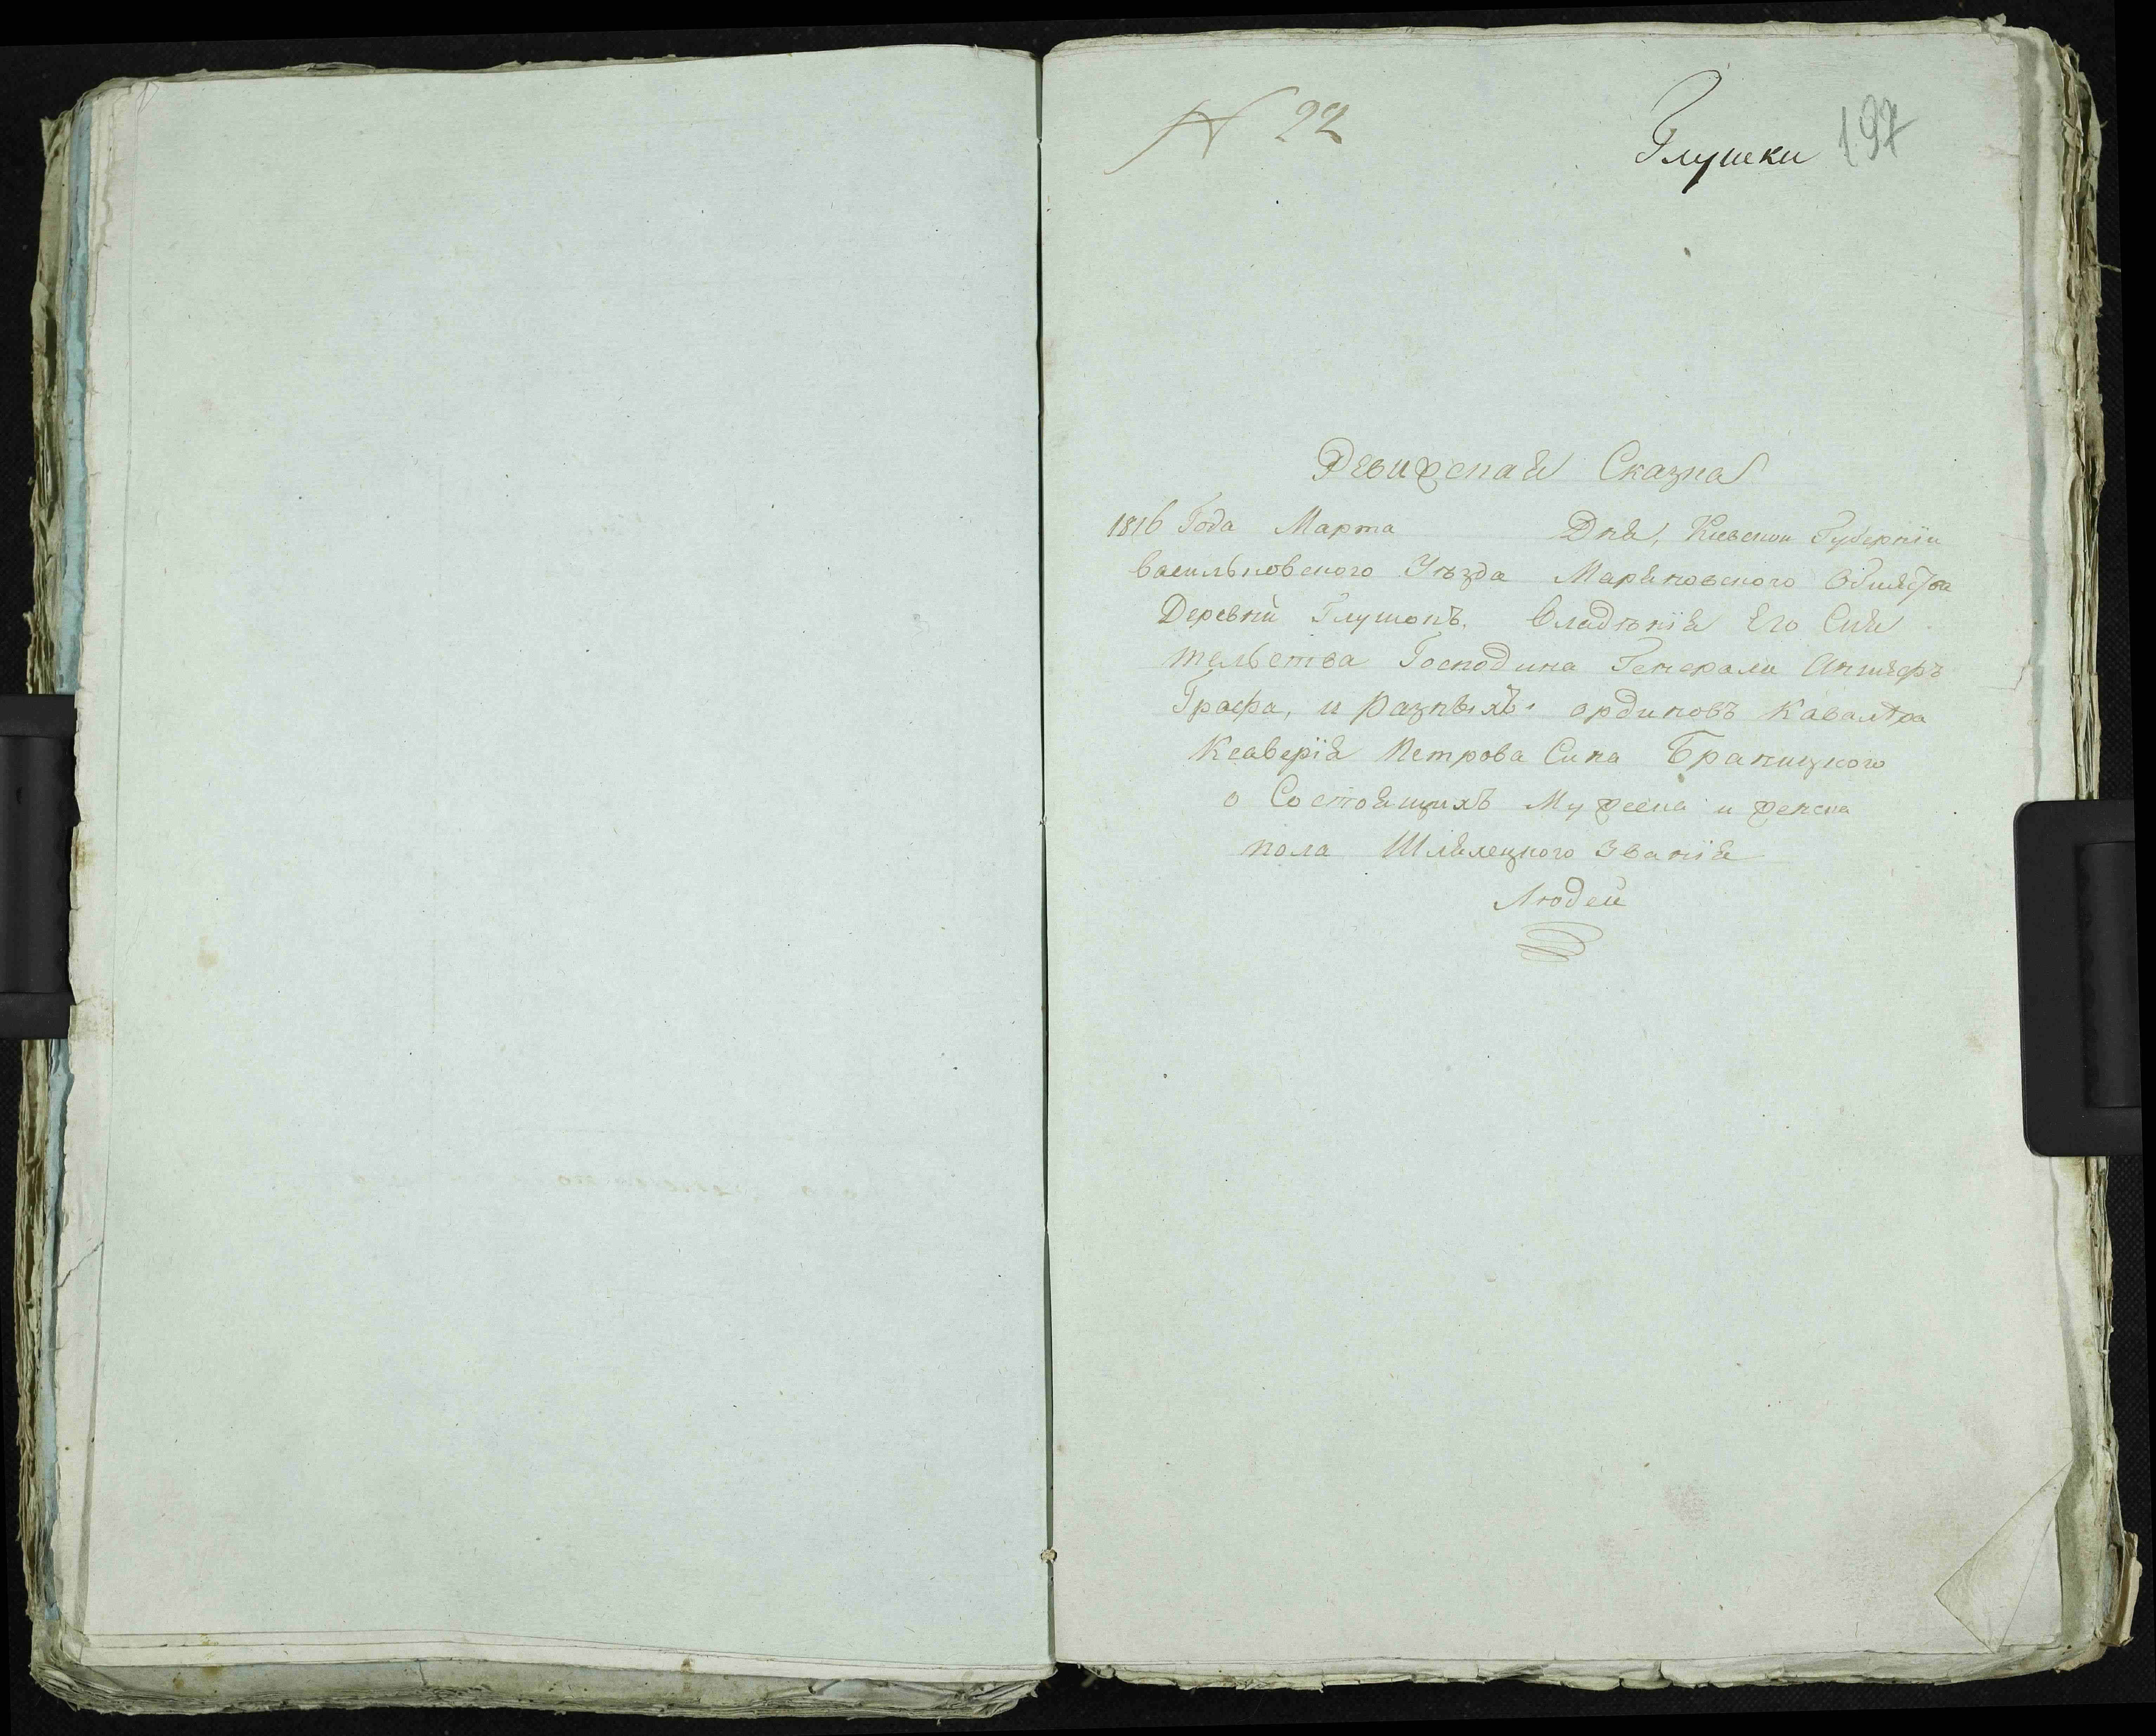 N 22
Глушки 197
Ревижская Сказка
1816 Года Марта Дня, Киевской Губерніи
Васильковского Уезда Маряновского
Деревни Глушокъ. Владѣнія Его Сия
тельства Господина Генерала Аншефъ
Графа, и разныхъ ординовъ Кавалѣра
Ксаверія Петрова Сина Браницкого
о Состоящихъ Мужеска и женска
пола Шляхецкого Званія
Людей